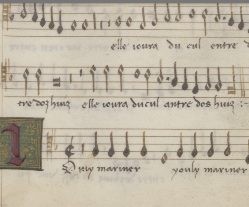 elle ioura du cul entre d
tre dos huis elle ioura du cul antre dos huis :
I
Ouly mariner youly mariner